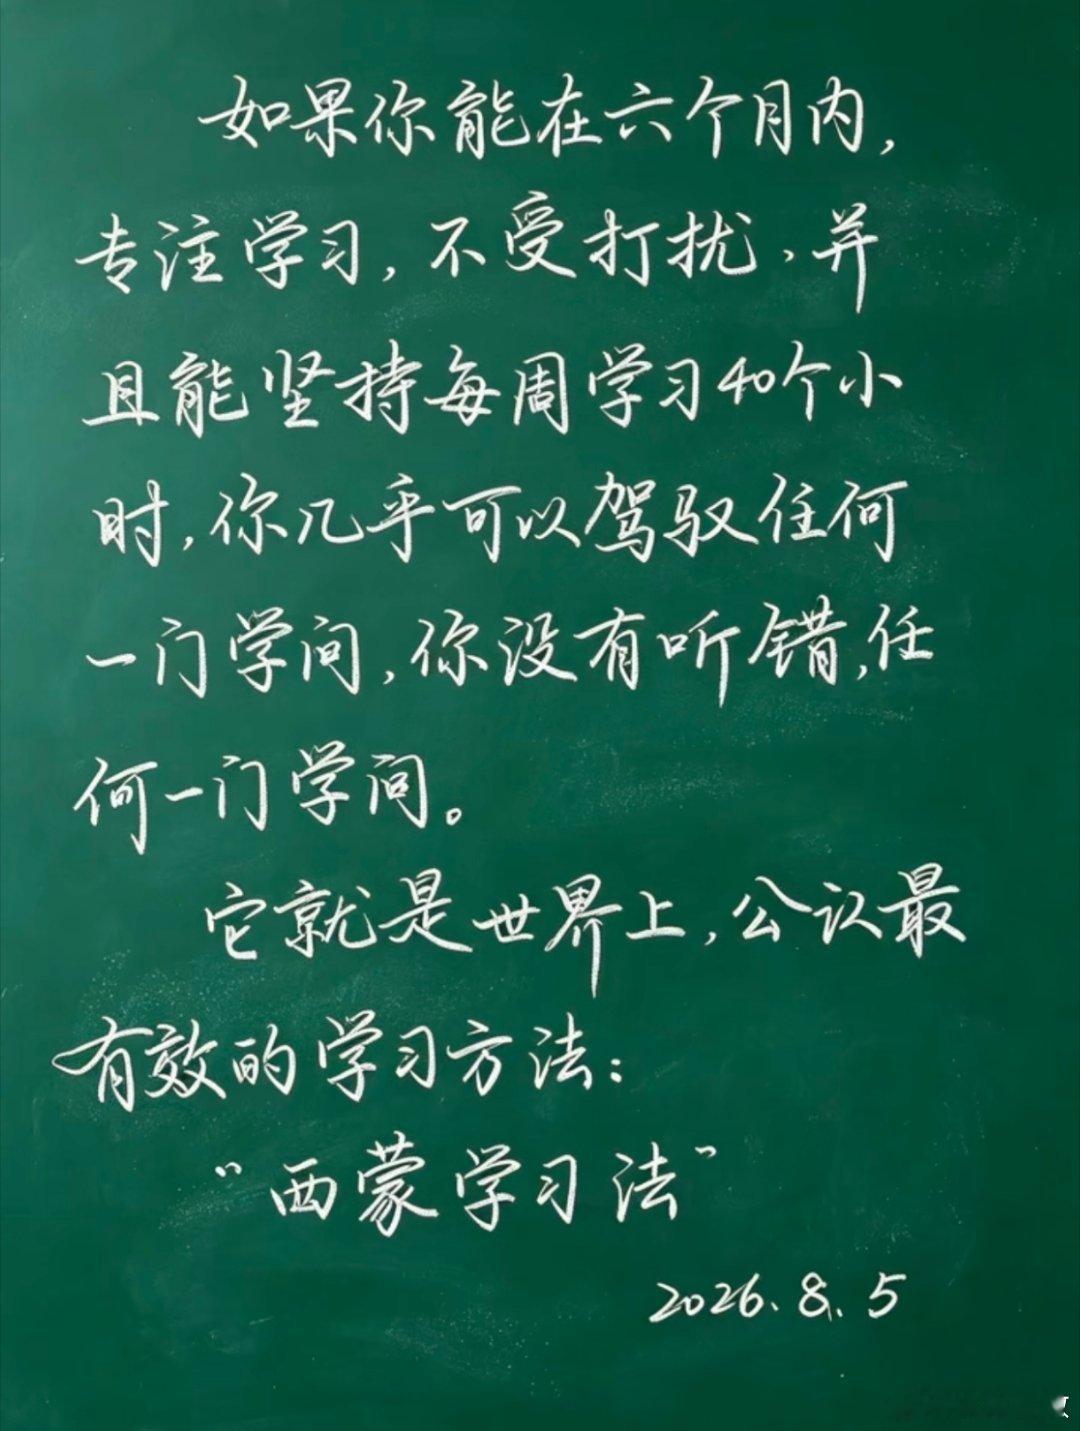 如果你能在六个月内，
专注学习，不受打扰、并
且能坚持每周学习40个小
时，你几乎可以驾驭任何
一门学问，你没有听错，任
何一门学问。
它就是世界上，公认最
有效的学习方法：
“西蒙学习法”
2026.8.5